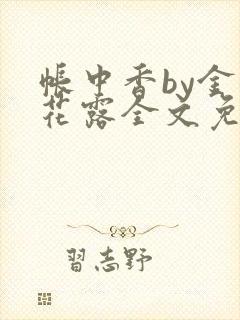 帳中香by金
花露全文免
習志野